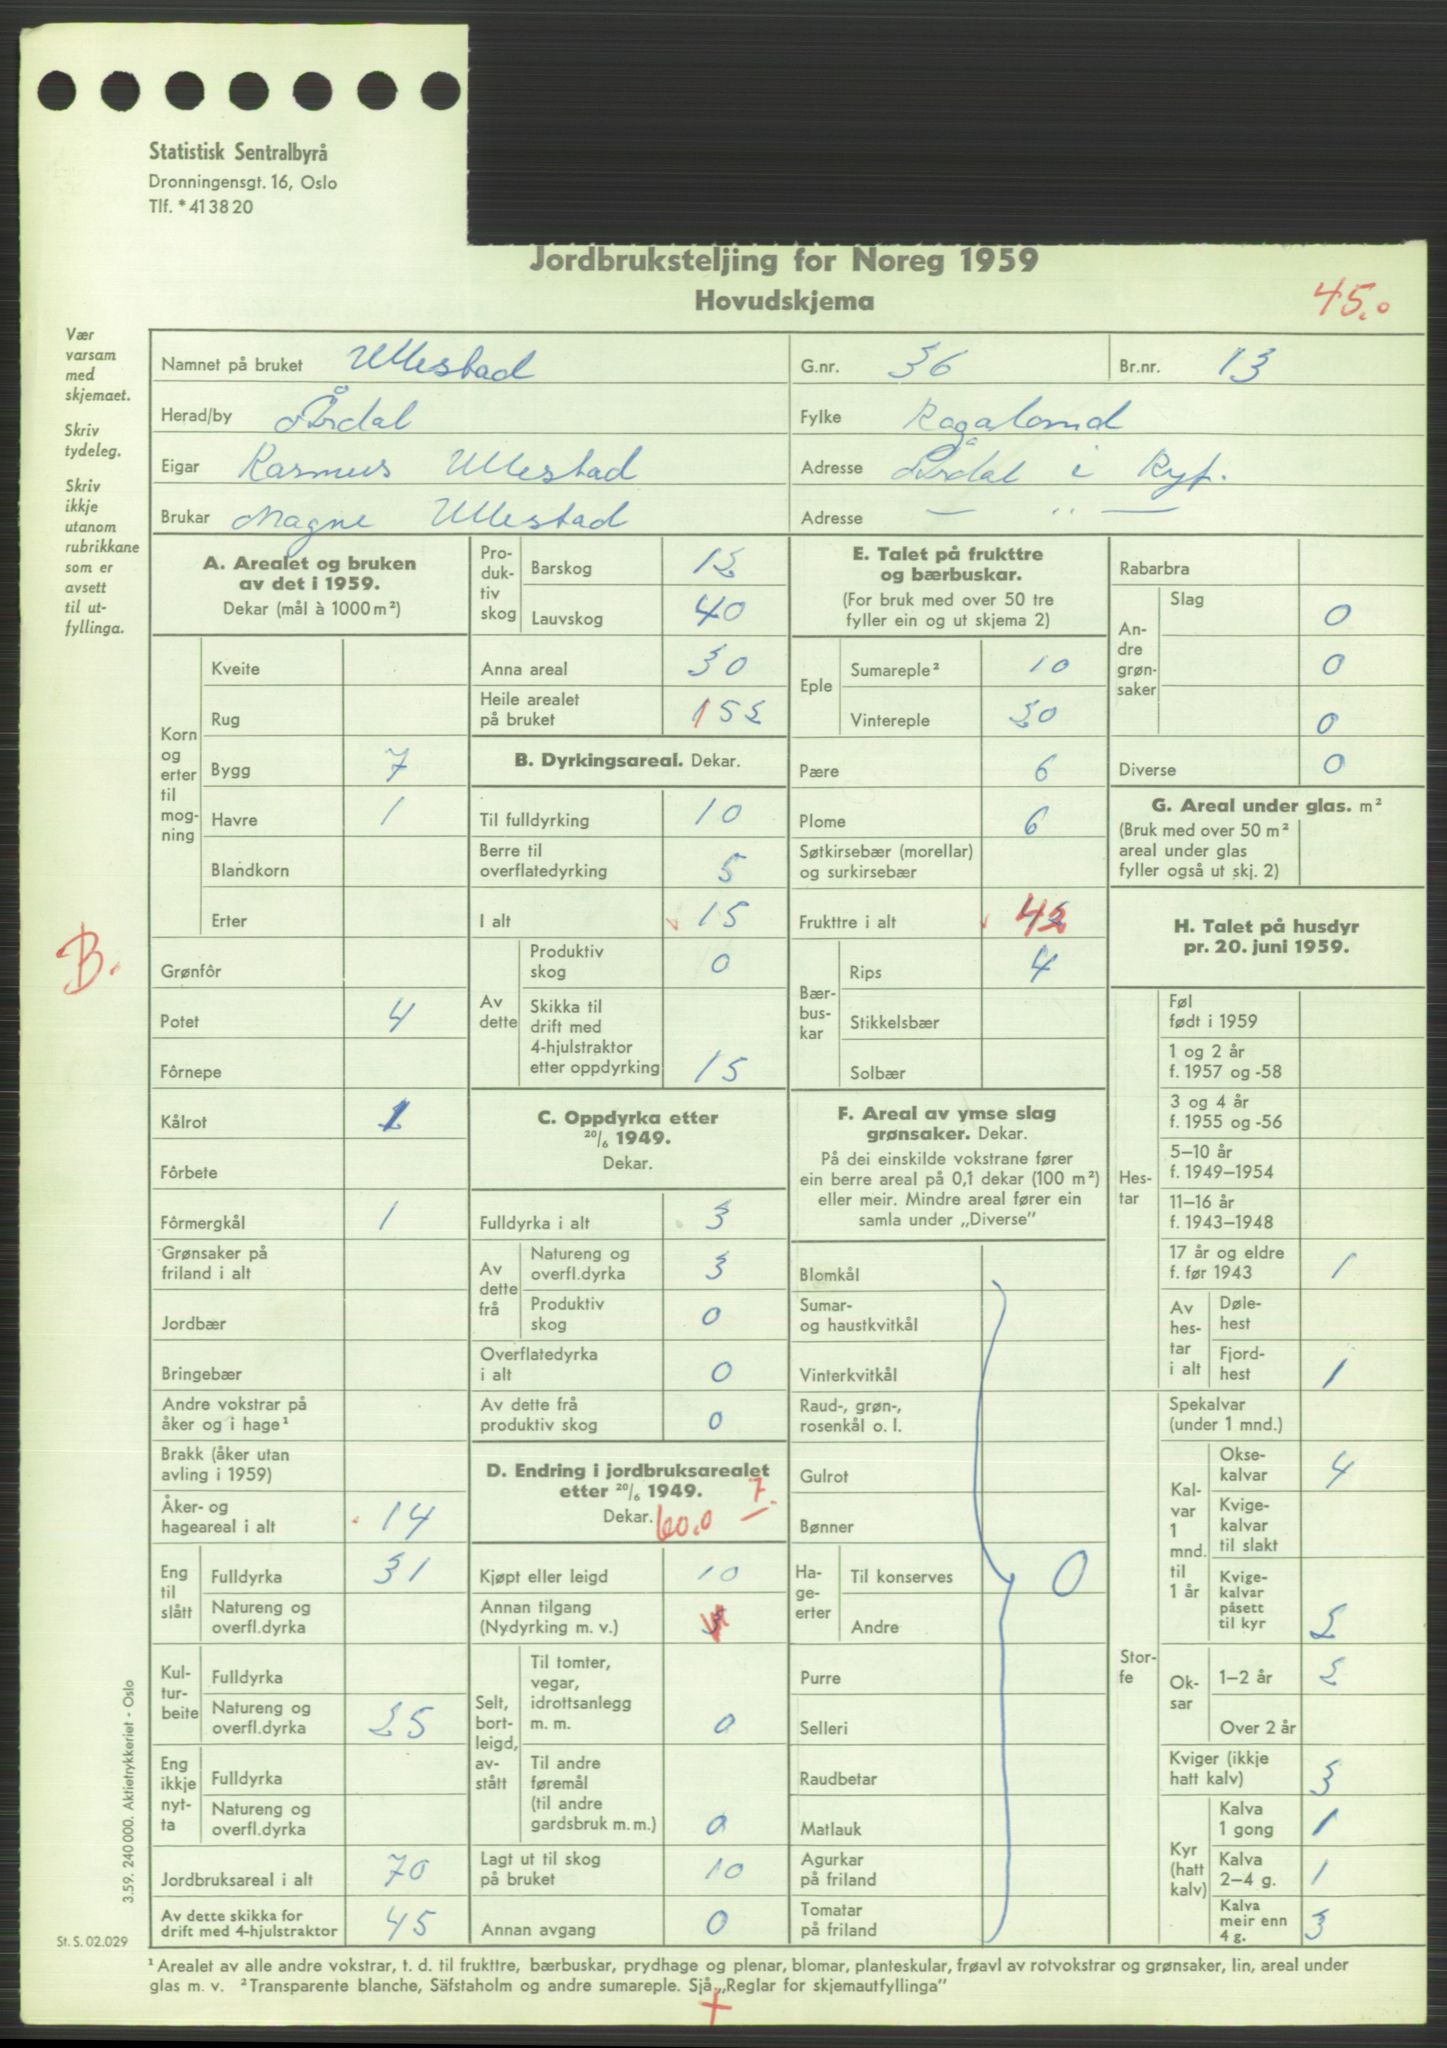 Statistisk Sentralbyrå
Dronningensgt. 16, Oslo
Tlf. *413820
Jordbruksteljing for Noreg 1959
Hovudskjema
45.0
Vær
varsam
med
skjemaet.
Skriv
tydeleg.
Skriv
ikkje
utanom
rubrikkane
som er
avsett
til ut-
fyllinga.
B.
Namnet på bruket Ullestad G.nr. 36 Br.nr. 13
Herad/by Årdal Fylke Rogaland
Eigar Rasmus Ullestad Adresse Årdal i Ryf.
Brukar Magne Ullestad Adresse — ,, —
A. Arealet og bruken
av det i 1959.
Dekar (mål à 1000 m²)
Korn
og
erter
til
mog-
ning
Kveite
Rug
Bygg 7
Havre 1
Blandkorn
Erter
Grønfôr
Potet 4
Fôrnepe
Kålrot 1
Fôrbete
Fôrmergkål 1
Grønsaker på
friland i alt
Jordbær
Bringebær
Andre vokstrar på
åker og i hage¹
Brakk (åker utan
avling i 1959)
Åker- og
hageareal i alt 14
Eng
til
slått
Fulldyrka 31
Natureng og
overfl.dyrka
Kul-
tur-
beite
Fulldyrka
Natureng og
overfl.dyrka 25
Eng
ikkje
nyt-
ta
Fulldyrka
Natureng og
overfl.dyrka
Jordbruksareal i alt 70
Av dette skikka for
drift med 4-hjulstraktor 45
Pro-
duk-
tiv
skog
Barskog 12
Lauvskog 40
Anna areal 30
Heile arealet
på bruket 152
B. Dyrkingsareal. Dekar.
Til fulldyrking 10
Berre til
overflatedyrking 5
I alt 15
Av
dette
Produktiv
skog 0
Skikka til
drift med
4-hjulstraktor
etter oppdyrking 15
C. Oppdyrka etter
20/6 1949.
Dekar.
Fulldyrka i alt 3
Av
dette
frå
Natureng og
overfl.dyrka 3
Produktiv
skog 0
Overflatedyrka
i alt 0
Av dette frå
produktiv skog 0
D. Endring i jordbruksarealet
etter 20/6 1949. 7.
Dekar. 60.0
Kjøpt eller leigd 10
Annan tilgang
(Nydyrking m. v.)
Selt,
bort-
leigd,
av-
stått
Til tomter,
vegar,
idrottsanlegg
m. m. 0
Til andre
føremål
(til andre
gardsbruk m. m.) 0
Lagt ut til skog
på bruket 10
Annan avgang 0
E. Talet på frukttre
og bærbuskar.
(For bruk med over 50 tre
fyller ein og ut skjema 2)
Eple
Sumareple² 10
Vintereple 20
Pære 6
Plome 6
Søtkirsebær (morellar)
og surkirsebær
Frukttre i alt 42
Bær-
bus-
kar
Rips 4
Stikkelsbær
Solbær
F. Areal av ymse slag
grønsaker. Dekar.
På dei einskilde vokstrane fører
ein berre areal på 0,1 dekar (100 m²)
eller meir. Mindre areal fører ein
samla under „Diverse”
Blomkål
Sumar-
og haustkvitkål
Vinterkvitkål
Raud-, grøn-,
rosenkål o. l.
Gulrot
Bønner
Ha-
ge-
erter
Til konserves 0
Andre
Purre
Selleri
Raudbetar
Matlauk
Agurkar
på friland
Tomatar
på friland
Rabarbra
An-
dre
grøn-
saker
Slag 0
0
0
Diverse 0
G. Areal under glas. m²
(Bruk med over 50 m²
areal under glas
fyller også ut skj. 2)
H. Talet på husdyr
pr. 20. juni 1959.
Hes-
tar
Føl
født i 1959
1 og 2 år
f. 1957 og -58
3 og 4 år
f. 1955 og -56
5–10 år
f. 1949–1954
11–16 år
f. 1943–1948
17 år og eldre
f. før 1943 1
Av
hes-
tar
i alt
Døle-
hest
Fjord-
hest 1
Stor-
fe
Spekalvar
(under 1 mnd.)
Kal-
var
1
mnd.
til
1 år
Okse-
kalvar 4
Kvige-
kalvar
til slakt
Kvige-
kalvar
påsett
til kyr 2
Ok-
sar
1–2 år 2
Over 2 år
Kviger (ikkje
hatt kalv) 3
Kyr
(hatt
kalv)
Kalva
1 gong 1
Kalva
2–4 g. 1
Kalva
meir enn
4 g. 3
3.59. 240000. Aktietrykkeriet - Oslo
St. S. 02.029
¹ Arealet av alle andre vokstrar, t. d. til frukttre, bærbuskar, prydhage og plenar, blomar, planteskular, frøavl av rotvokstrar og grønsaker, lin, areal under
glas m. v. ² Transparente blanche, Säfstaholm og andre sumareple. Sjå „Reglar for skjemautfyllinga”
+